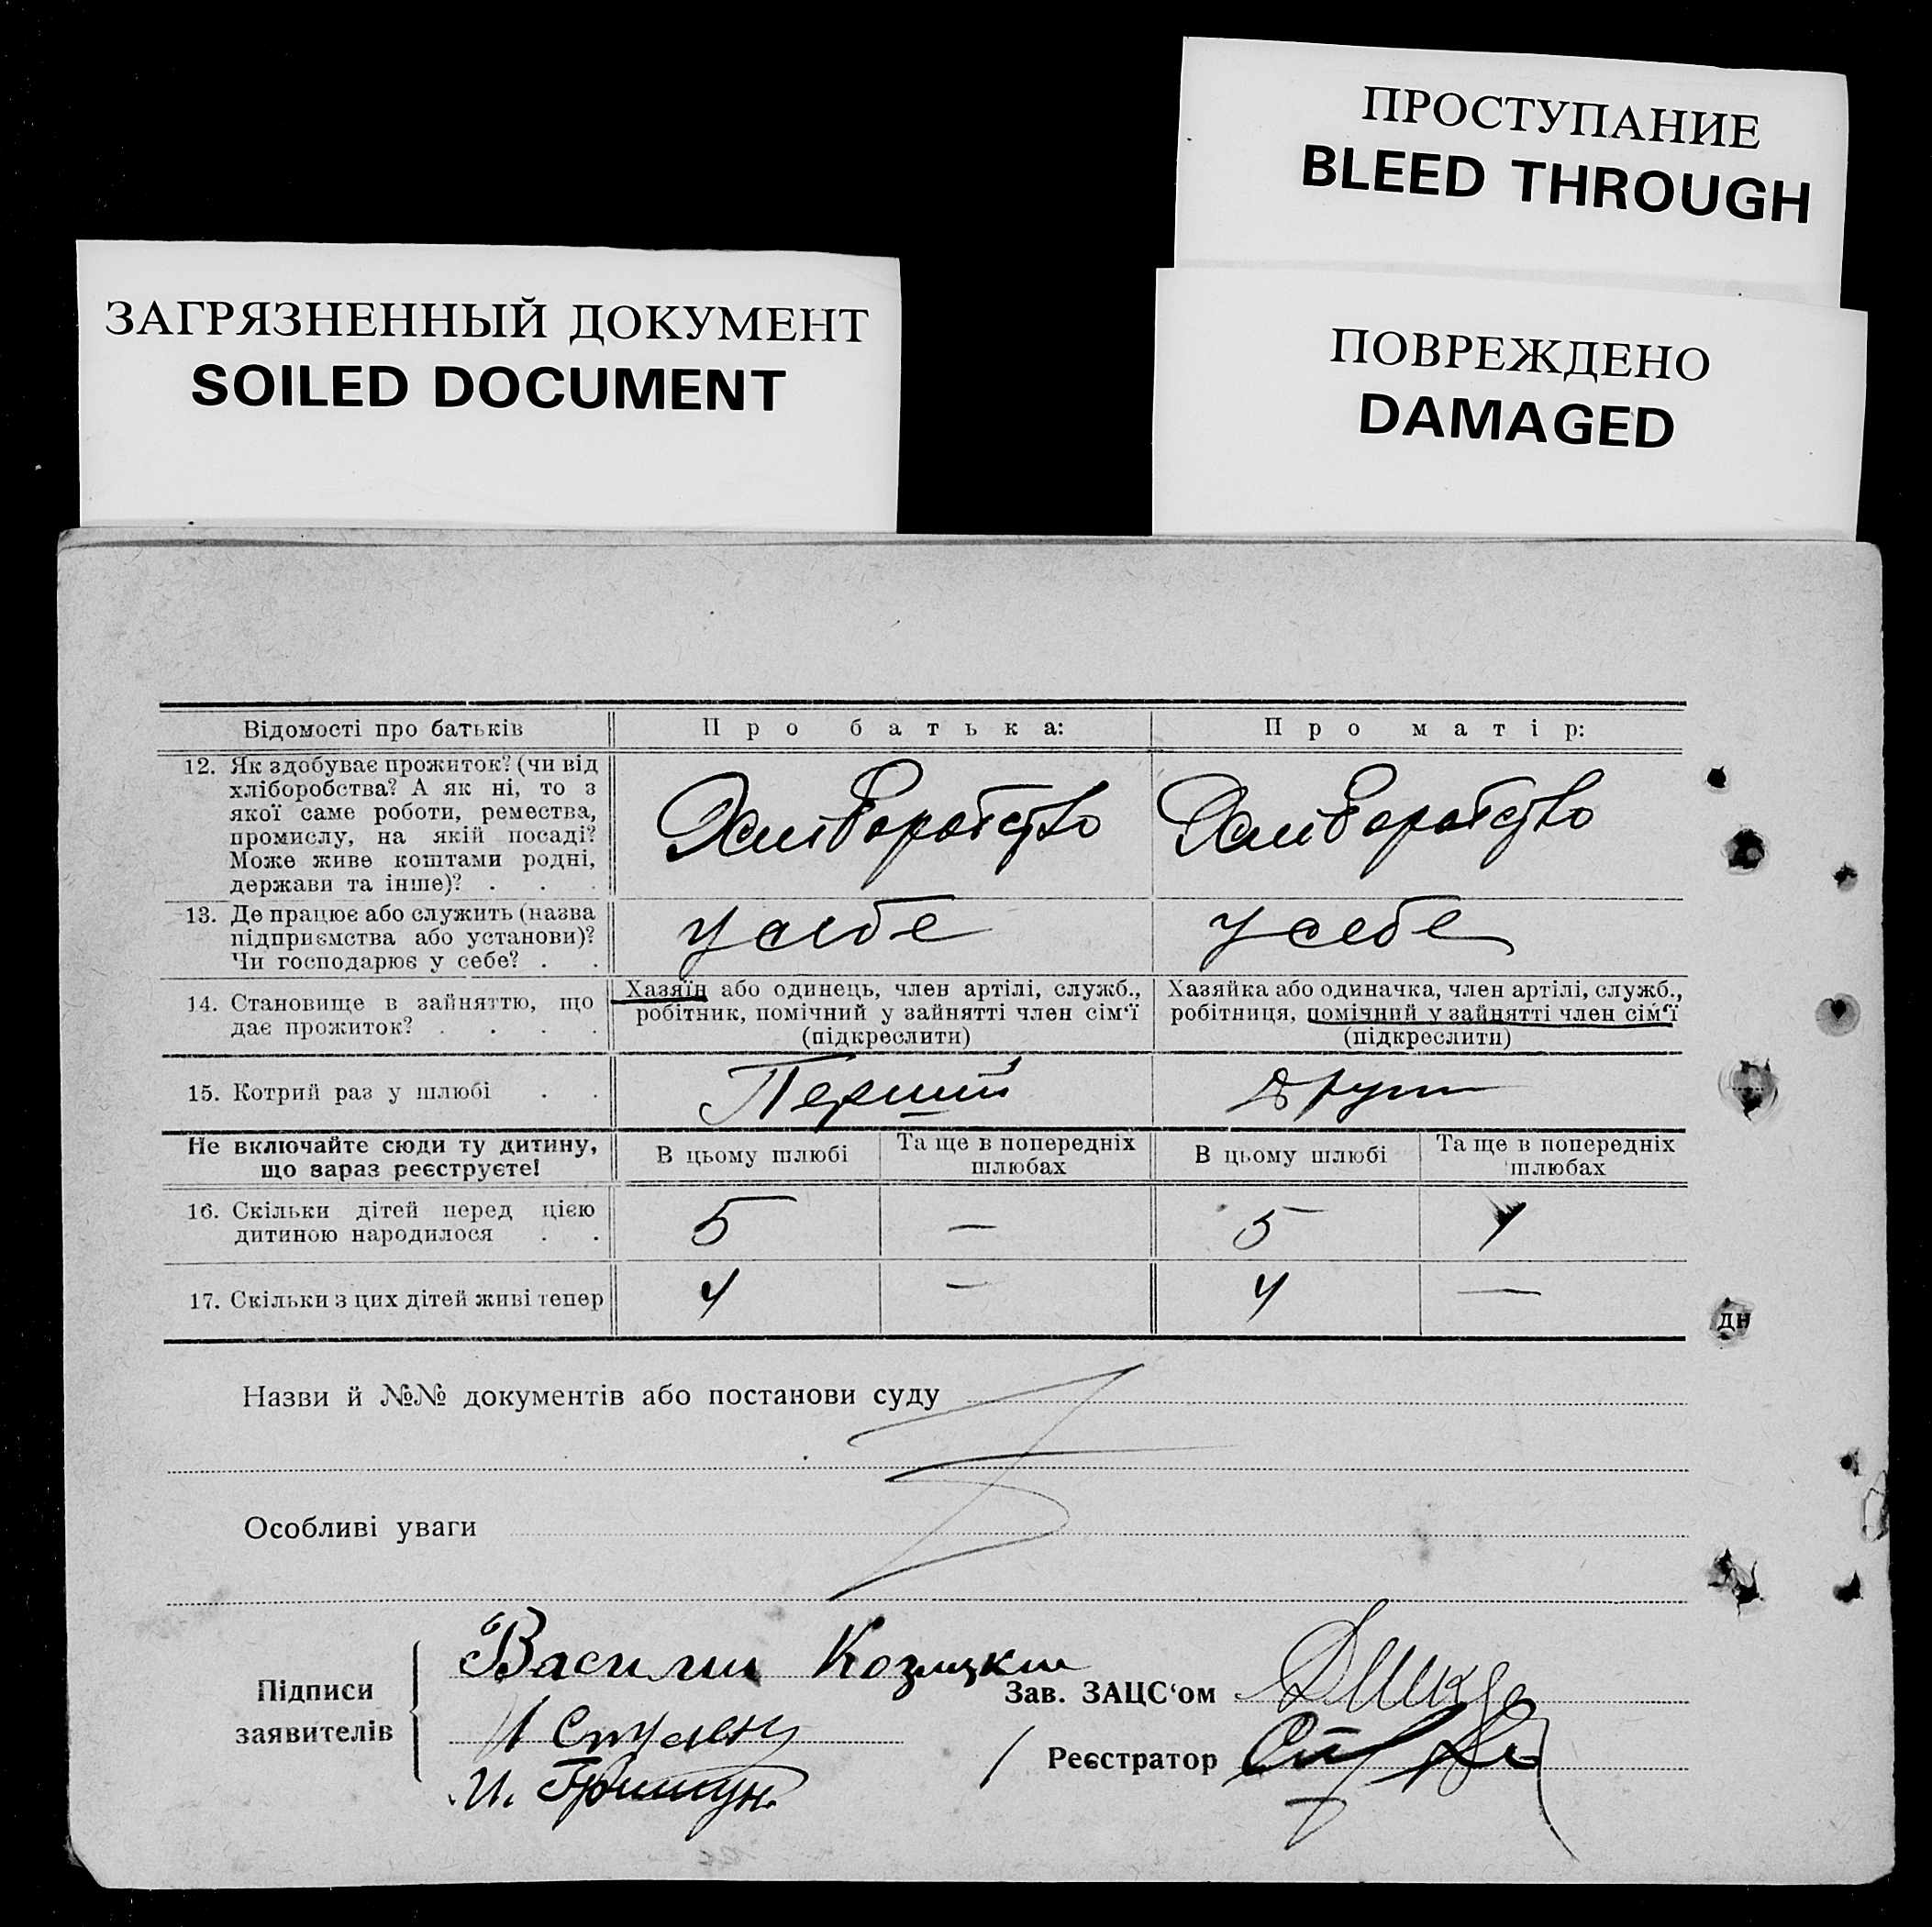 ПРОСТУПАНИЕ
BLEED THROUGH
ЗАГРЯЗНЕННЫЙ ДОКУМЕНТ
SOILED DOCUMENT
ПОВРЕЖДЕНО
DAMAGED
Відомості про батьків Про батька: Про матір:
12. Як здобуває прожиток? (чи від
хліборобства? А як ні, то з
якої саме роботи, ремества,
промислу, на якій посаді?
Може живе коштами родні,
держави та інше)? . . .
Хліборобство Хліборобство
13. Де працює або служить (назва
підприємства або установи)?
Чи господарює у себе? . .
у себе у себе
14. Становище в зайняттю, що
дає прожиток? . . . .
Хазяїн або одинець, член артілі, служб.,
робітник, помічний у зайнятті член сім‘ї
(підкреслити)
Хазяйка або одиначка, член артілі, служб.,
робітниця, помічний у зайнятті член сім‘ї
(підкреслити)
15. Котрий раз у шлюбі . . Перший
Не включайте сюди ту дитину,
що зараз реєструєте!
В цьому шлюбі
Та ще в попередніх
шлюбах
В цьому шлюбі
Та ще в попередніх
шлюбах
16. Скільки дітей перед цією
дитиною народилося . .
5 — 5 1
17. Скільки з цих дітей живі тепер 4 — 4 —
дн
Назви й №№ документів або постанови суду
Особливі уваги
Підписи
заявителів
Василий Козицкий
И.
Зав. ЗАЦС‘ом
Реєстратор